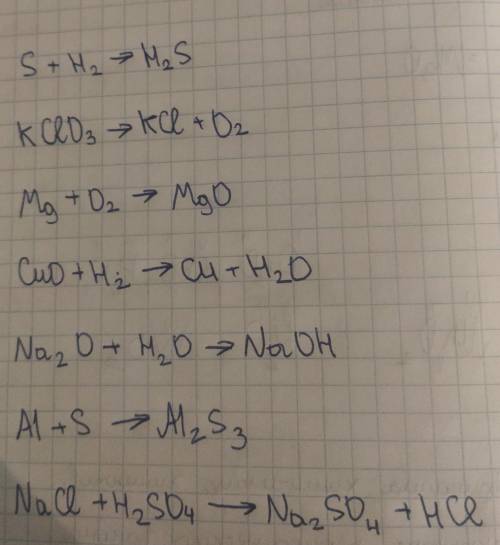 S + H₂ → H₂S
KClO₃ → KCl + O₂
Mg + O₂ → MgO
CuO + H₂ → Cu + H₂O
Na₂O + H₂O → NaOH
Al + S → Al₂S₃
NaCl + H₂SO₄ → Na₂SO₄ + HCl